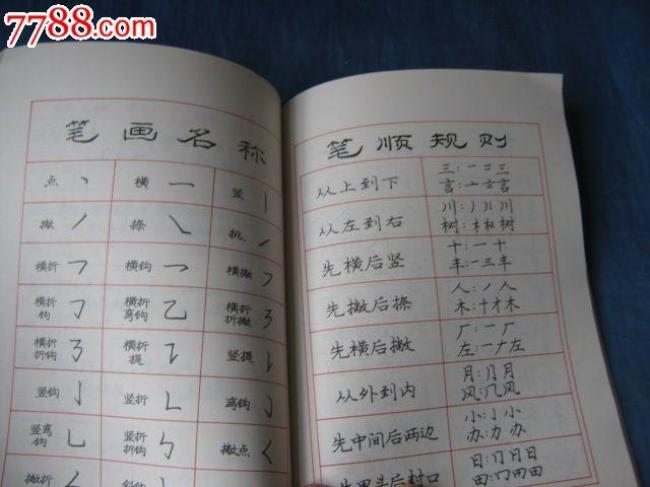 7788.com
笔画名称
点 丶 横 一 竖 丨
撇 丿 捺 ㇏ 挑 ㇀
横折 𠃍 横钩 乛 横撇 ㇇
横折钩 𠃌 横折弯钩 乙 横折折撇 ㇋
横折折钩 ㇡ 横折提 ㇊ 竖提 ㇙
竖钩 亅 竖折 ㇗ 弯钩 ㇁
竖弯钩 乚 竖折折钩 ㇉ 撇点 ㇛
撇折 ㇜ 斜钩
笔顺规则
从上到下 三:一二三
言:亠言言
从左到右 川:丿川川
树:木权树
先横后竖 十:一十
丰:一三丰
先撇后捺 人:丿人
木:十才木
先横后撇 厂:一厂
左:一ナ左
从外到内 月:冂月月
风:几风
先中间后两边 小:亅小小
办:力办办
先里头后封口 日:冂日日
田:冂田田